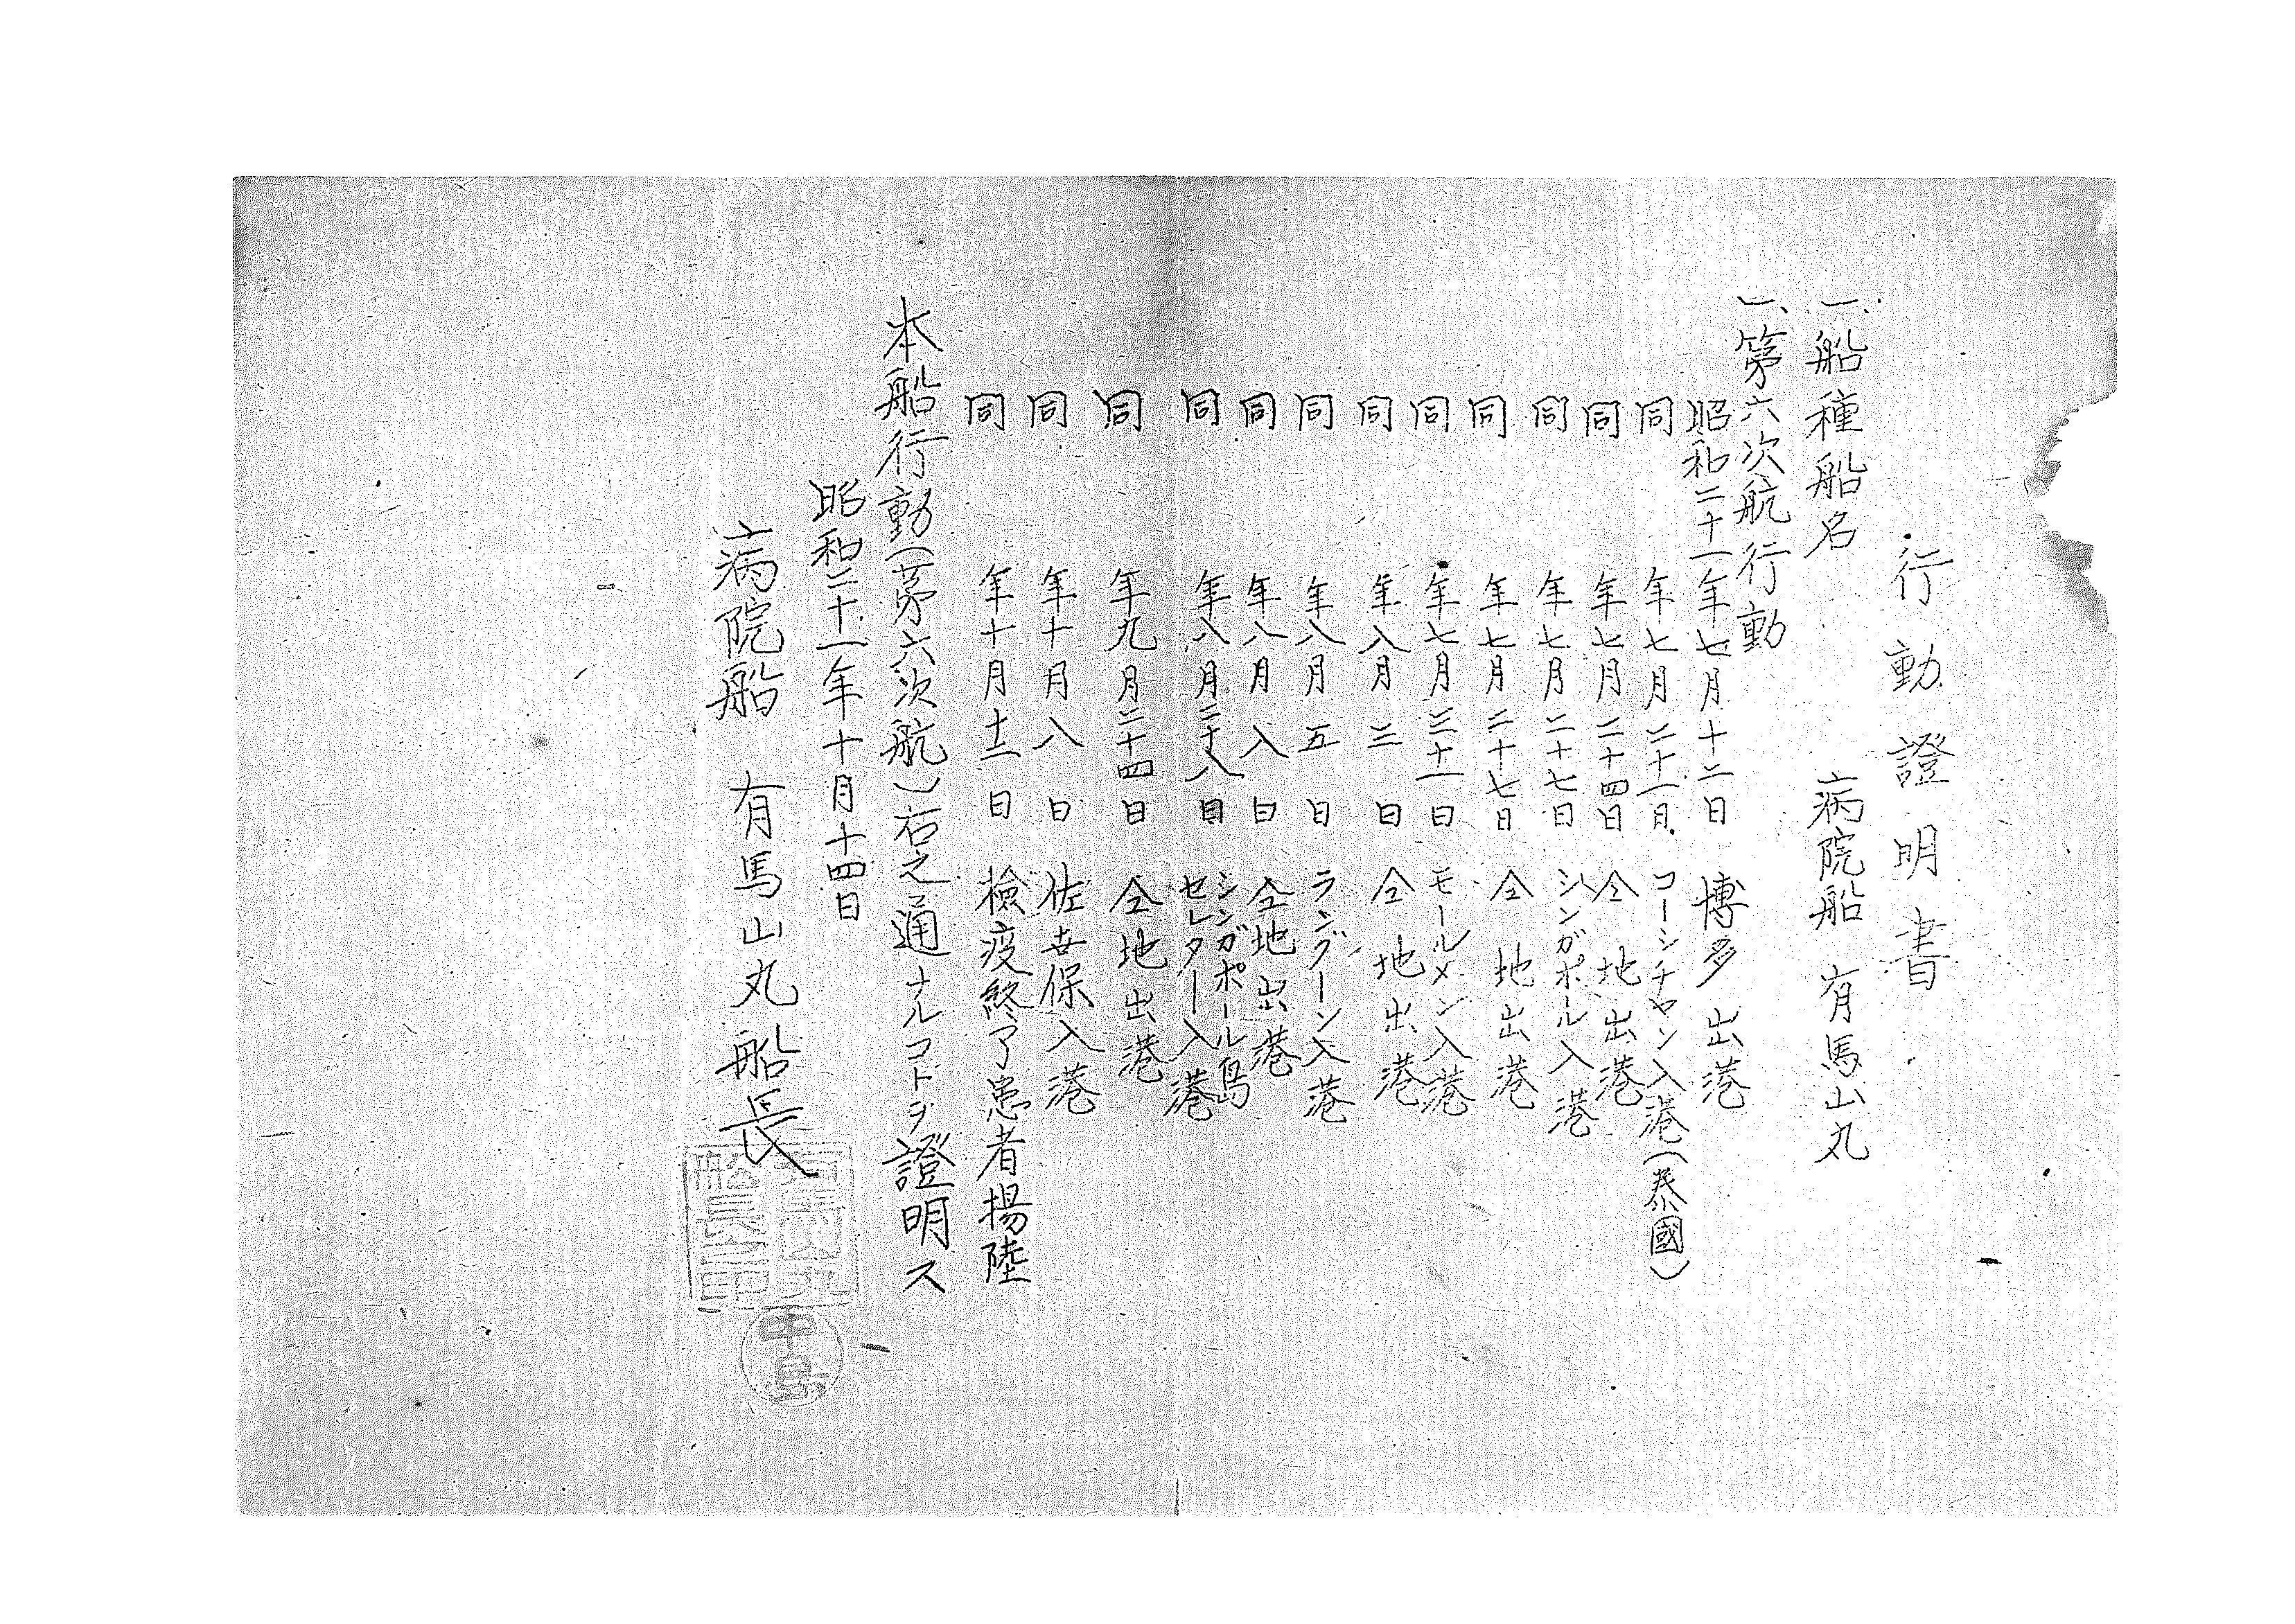 行動證明書
一、船種船名　病院船　有馬山丸
一、第六次航行動
昭和二十一年七月十二日　博多出港
同　年七月二十一日　コーシチャン入港（泰國）
同　年七月二十四日　仝地出港
同　年七月二十七日　シンガポール入港
同　年七月二十七日　仝地出港
同　年七月三十一日　モールメン入港
同　年八月三日　仝地出港
同　年八月五日　ラングーン入港
同　年八月八日　仝地出港
同　年八月二十八日　シンガポール島
セレター入港
同　年九月二十四日　仝地出港
同　年十月八日　佐世保入港
同　年十月十二日　檢疫終了患者揚陸
本船行動（第六次航）右之通ナルコトヲ證明ス
昭和二十一年十月十四日
病院船　有馬山丸船長
有馬山丸
船長之印
中島